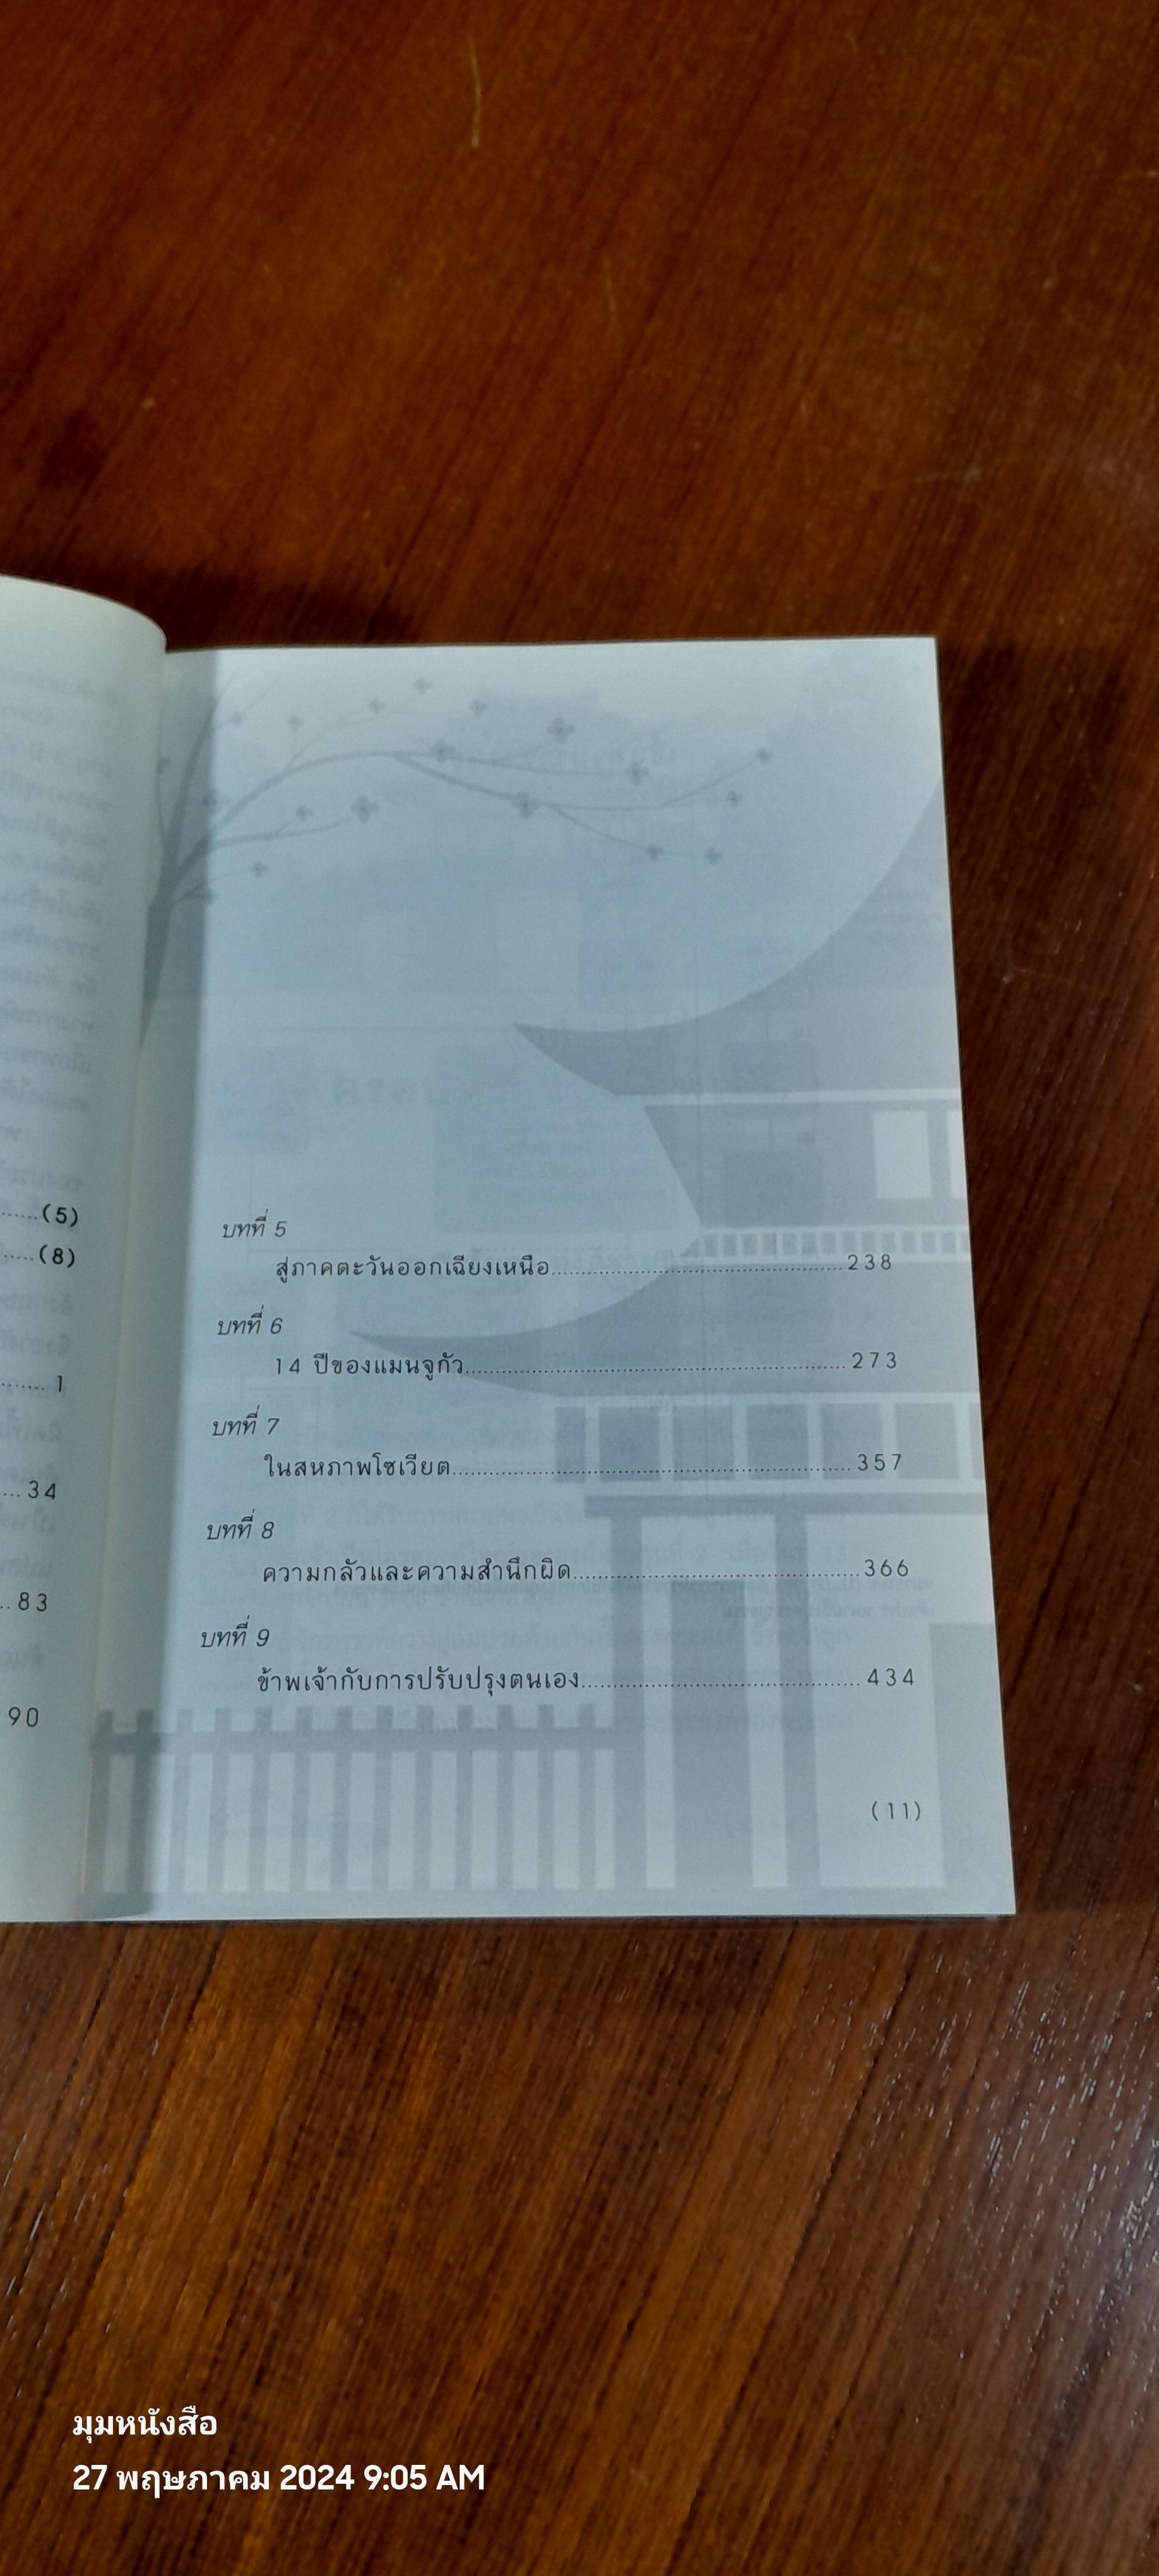 (5)
(8)
1
34
83
90
บทที่ 5
สู่ภาคตะวันออกเฉียงเหนือ 238
บทที่ 6
14 ปีของแมนจูกัว 273
บทที่ 7
ในสหภาพโซเวียต 357
บทที่ 8
ความกลัวและความสำนึกผิด 366
บทที่ 9
ข้าพเจ้ากับการปรับปรุงตนเอง 434
(11)
มุมหนังสือ
27 พฤษภาคม 2024 9:05 AM